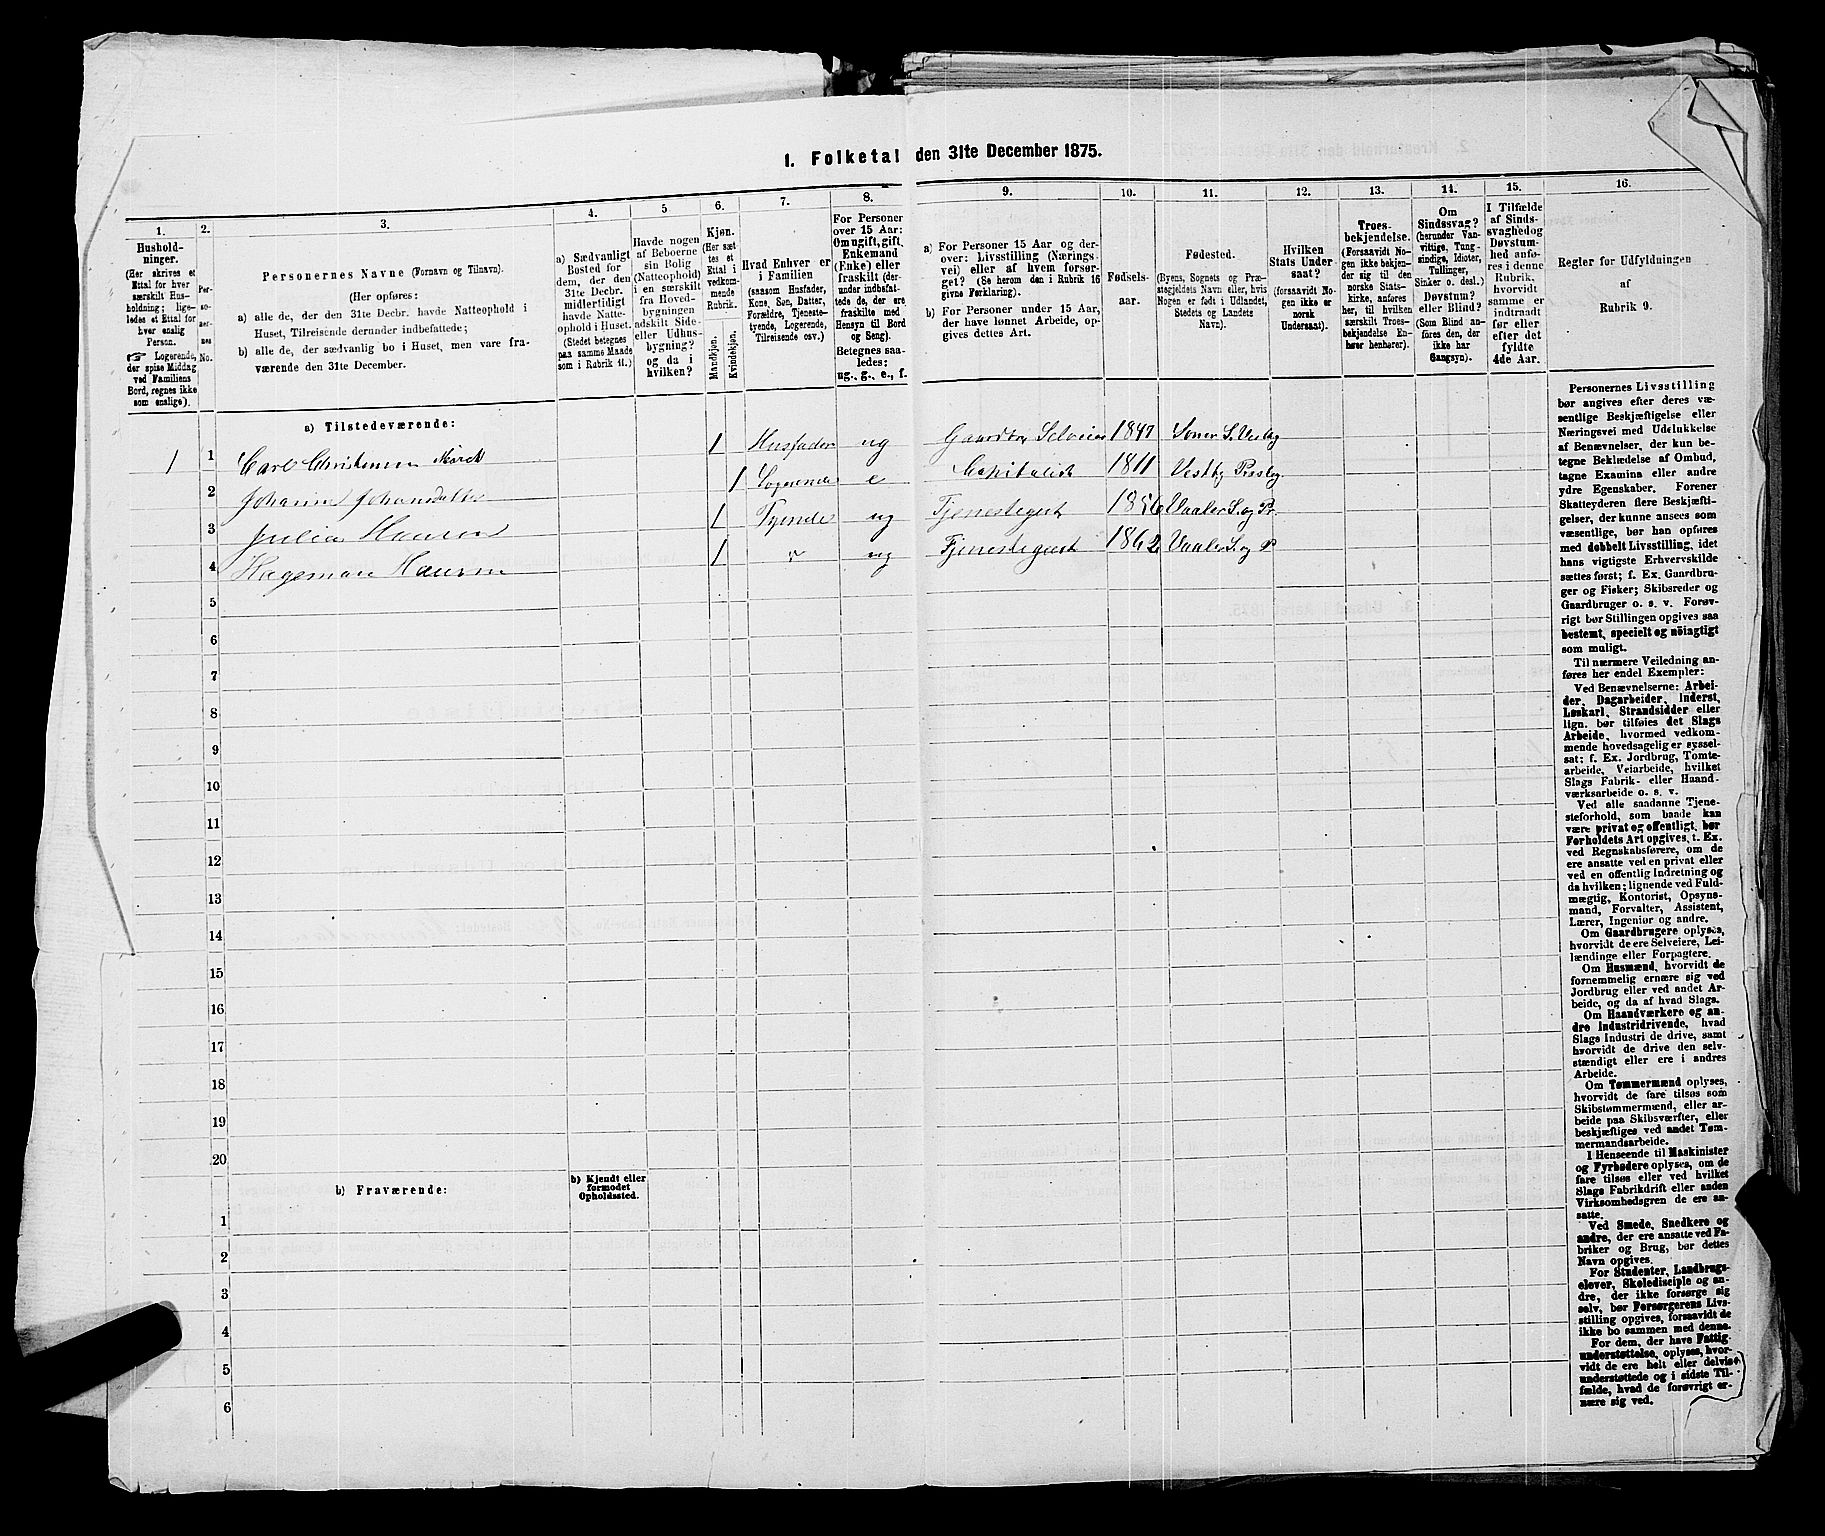 1. Folketal den 31te December 1875.
1.
2.
3.
4.
5
6.
7.
8.
9.
10.
11.
12.
13.
14.
15.
16.
Hushold-
ninger.
(Her skrives et
Ettal for hver
særskilt Hus-
holdning; lige-
ledes et Ettal for
hver enslig
Person.
☞ Logerende,
der spise Middag
ved Familiens
Bord, regnes ikke
som enslige).
Per-
so-
ner-
nes
No.
Personernes Navne (Fornavn og Tilnavn).
(Her opføres:
a) alle de, der den 31te Decbr. havde Natteophold i
Huset, Tilreisende derunder indbefattede;
b) alle de, der sædvanlig bo i Huset, men vare fra-
værende den 31te December.
a) Sædvanligt
Bosted for
dem, der den
31te Decbr.
midlertidigt
havde Natte-
ophold i Huset.
(Stedet betegnes
paa samme Maade
som i Rubrik 11.)
Havde nogen
af Beboerne
sin Bolig
(Natteophold)
i en særskilt
fra Hoved-
bygningen
adskilt Side-
eller Udhus-
bygning?
og da i
hvilken?
Kjøn.
(Her sæt-
tes et
Ettal i
vedkom-
mende
Rubrik.
Mandkjøn.
Kvindekjøn.
Hvad Enhver er
i Familien
(saasom Husfader,
Kone, Søn, Datter,
Forældre, Tjeneste-
tyende, Logerende,
Tilreisende osv.)
For Personer
over 15 Aar:
Om ugift, gift,
Enkemand
(Enke) eller
fraskilt (der-
under indbefat-
tede de, der ere
fraskilte med
Hensyn til Bord
og Seng).
Betegnes saa-
ledes:
ug., g., e., f.
a) For Personer 15 Aar og der-
over: Livsstilling (Nærings-
vei) eller af hvem forsør-
get? (Se herom den i Rubrik 16
givne Forklaring).
b) For Personer under 15 Aar,
der have lønnet Arbeide, op-
gives dettes Art.
Fødsels-
aar.
Fødested.
(Byens, Sognets og Præ-
stegjeldets Navn eller, hvis
Nogen er født i Udlandet,
Stedets og Landets
Navn).
Hvilken
Stats Under-
saat?
(forsaavidt No-
gen ikke er
norsk
Undersaat).
Troes-
bekjendelse.
(Forsaavidt No-
gen ikke bekjen-
der sig til den
norske Stats-
kirke, anføres
her, til hvilken
særskilt Troes-
bekjendelse En-
hver henhører).
Om
Sindssvag?
(herunder Van-
vittige, Tung-
sindige, Idioter,
Tullinger,
Sinker o. desl.)
Døvstum?
eller Blind?
(Som Blind an-
føres den, der
ikke har
Gangsyn).
I Tilfælde
af Sinds-
svaghed og
Døvstum-
hed anfø-
res i denne
Rubrik,
hvorvidt
samme er
indtraadt
før eller
efter det
fyldte
4de Aar.
Regler for Udfyldningen
af
Rubrik 9.
a) Tilstedeværende:
1 1 Carl Christensen Mørch 1 Husfader ug Gaardbr Selveier 1847 Soner S. Vestby
2 Johanne Johansdatter 1 Logerende e Capitalist 1811 Vestby Præstg
3 Julius Hansen 1 Tyende ug Tjenestegut 1856 Vaaler S. og Pr.
4 Hageman Hansen 1 " ug Tjenestegut 1862 Vaaler S. og P
5
6
7
8
9
10
11
12
13
14
15
16
17
18
19
20
b) Fraværende:
b) Kjendt eller
formodet
Opholdssted.
1
2
3
4
5
6
Personernes Livsstilling
bør angives efter deres væ-
sentlige Beskjæftigelse eller
Næringsvei med Udelukkelse
af Benævnelser, der kun be-
tegne Beklædelse af Ombud,
tagne Examina eller andre
ydre Egenskaber. Forener
Skatteyderen flere Beskjæfti-
gelser, der kunne ansees som
væsentlige, bør han opføres
med dobbelt Livsstilling, idet
hans vigtigste Erhvervskilde
sættes først; f. Ex. Gaardbru-
ger og Fisker; Skibsreder og
Gaardbruger o. s. v. Forøv-
rigt bør Stillingen opgives saa
bestemt, specielt og nöiagtigt
som muligt.
Til nærmere Veiledning an-
føres her endel Exempler:
Ved Benævnelserne: Arbei-
der, Dagarbeider, Inderst,
Løskarl, Strandsidder eller
lign. bør tilføies det Slags
Arbeide, hvormed vedkom-
mende hovedsagelig er syssel-
sat; f. Ex. Jordbrug, Tomte-
arbeide, Veiarbeide, hvilket
Slags Fabrik- eller Haand-
værksarbeide o. s. v.
Ved alle saadanne Tjene-
steforhold, som baade kan
være privat og offentligt, bør
Forholdets Art opgives, t. Ex.
ved Regnskabsførere, om de
ere ansatte ved en privat eller
ved en offentlig Indretning og
da hvilken; lignende ved Fuld-
mægtig, Kontorist, Opsyns-
mand, Forvalter, Assistent,
Lærer, Ingeniør og andre.
Om Gaardbrugere oplyses,
hvorvidt de ere Selveiere, Lei-
lændinge eller Forpagtere.
Om Husmænd, hvorvidt de
fornemmelig ernære sig ved
Jordbrug eller ved andet Ar-
beide, og da af hvad Slags.
Om Haandværkere og an-
dre Industridrivende, hvad
Slags Industri de drive, samt
hvorvidt de drive den selv-
stændigt eller ere i andres
Arbeide.
Om Tømmermænd oplyses,
hvorvidt de fare tilsøs som
Skibstømmermænd, eller ar-
beide paa Skibsværfter, eller
beskjæftiges ved andet Tøm-
mermandsarbeide.
I Henseende til Maskinister
og Fyrbødere oplyses, om de
fare tilsøs eller ved hvilket
Slags Fabrikdrift eller anden
Virksomhedsgren de ere an-
satte.
Ved Smede, Snedkere og
andre, der ere ansatte ved Fa-
briker og Brug, bør dettes
Navn opgives.
For Studenter, Landbrugs-
elever, Skoledisciple og an-
dre, der ikke forsørge sig
selv, bør Forsørgerens Livs-
stilling opgives, forsaavidt de
ikke bo sammen med denne.
For dem, der have Fattig-
understøttelse, oplyses, hvor-
vidt de ere helt eller delvise
understøttede og i sidste Til-
fælde, hvad de forøvrigt er-
nære sig ved.